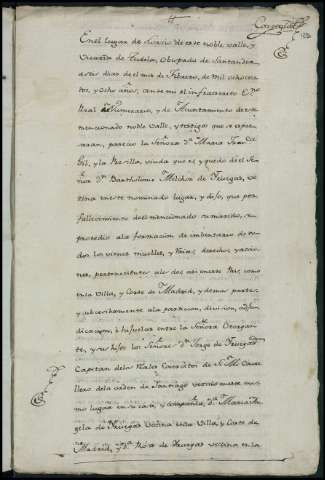 En el lugar de de este noble valle, y
de Obispado de Santander
a diez dias del mes de Febrero, de mil ochocien
tos, y ocho años, ante mi el infraescrito
Real y Numerario, y de Ayuntamiento de este
mencionado noble valle, y testigos que se expre
saran, parecio la Señora D.ª Maria
viuda que es y quedó de el Se
ñor D.n Bartholome Melchor de
vecina de este nominado lugar, y dijo, que por
fallecimiento del mencionado su marido, se
procedio a la formacion de imbentario de to
dos los vienes muebles, y raices, derechos, y accio
nes, pertenecientes a los dos asi en este Pais, como
en la Villa, y Corte de Madrid, y demas partes,
y subcesibamente a la particion, division, adju
dicacion, è hijuelas entre la Señora Otorgan
te, y sus hijos los Señores D.n Jorge de
Capitan de los Reales Exercitos de S. M. Cava
llero de la orden de Santiago vecino de este mis
mo lugar en su casa, y compañia, D.ª Maria An
gela de vecina de la Villa y Corte de
Madrid, y D.ª Rosa de vecina en la